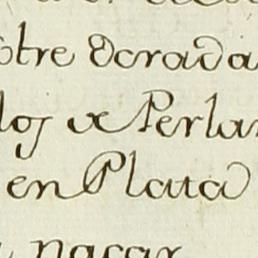 otre dorada
los de Perlas
en Plata
nacar